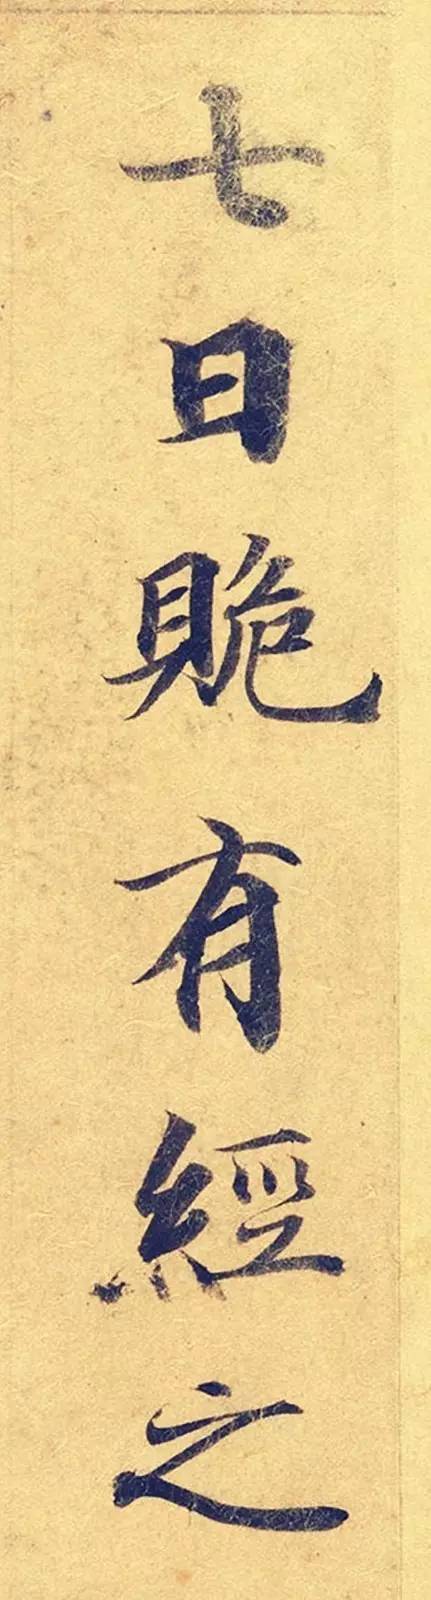 七日有經之